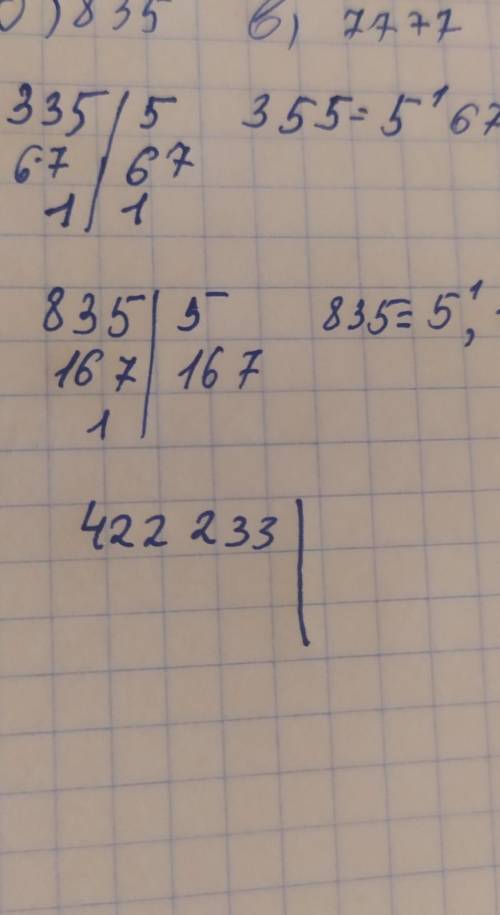 ) 835 в) 7777
335 | 5 355 = 5¹ 67
67 | 67
1 | 1
835 | 5 835 = 5¹,
167 | 167
1
422 233 |